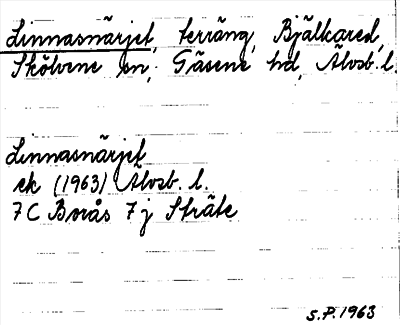 Linnasnärjet, terräng, Bjälkared,
Skölvene sn, Gäsene hd, Älvsb. l.
Linnasnärjet
ek (1963) Älvsb. l.
7 C Borås 7 j Stråte
S.P. 1963